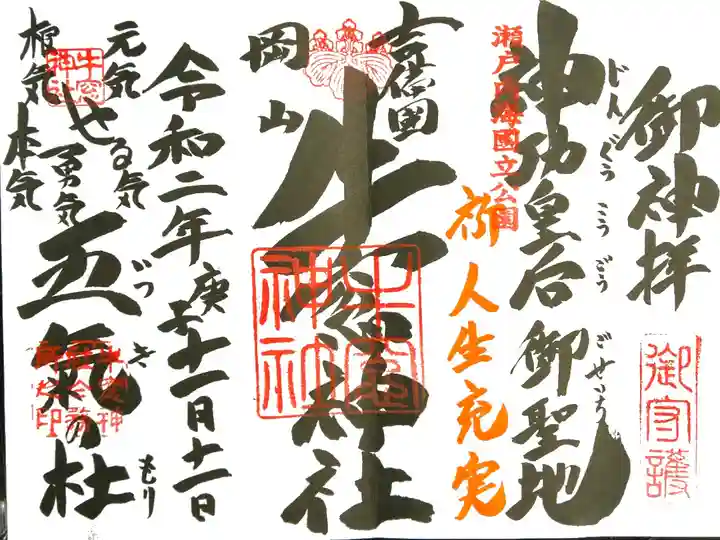 御神拝
御守護
神功皇后 御聖地
じんぐうこうごう
ごせいち
瀬戸内海國立公園
祈 人生充実
吉備國
岡山
牛窓神社
牛窓神社
令和二年庚子十一月十二日
元気
やる気
勇気
本気
根気
五氣の杜
いつき
もり
牛窓神社